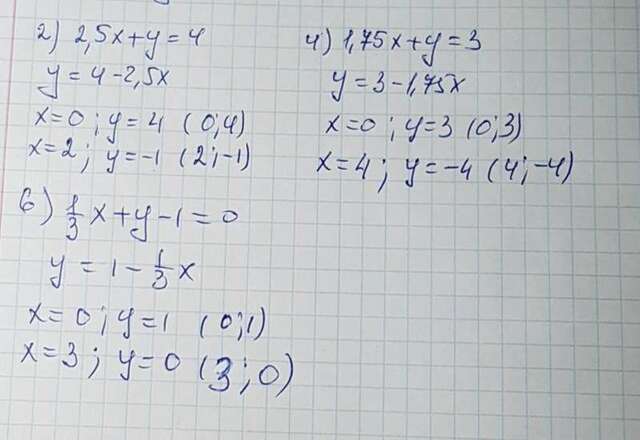 2) 2,5x+y=4
y=4-2,5x
x=0; y=4 (0;4)
x=2; y=-1 (2;-1)
4) 1,75x+y=3
y=3-1,75x
x=0; y=3 (0;3)
x=4; y=-4 (4;-4)
6) 1/3 x+y-1=0
y=1-1/3 x
x=0; y=1 (0;1)
x=3; y=0 (3;0)